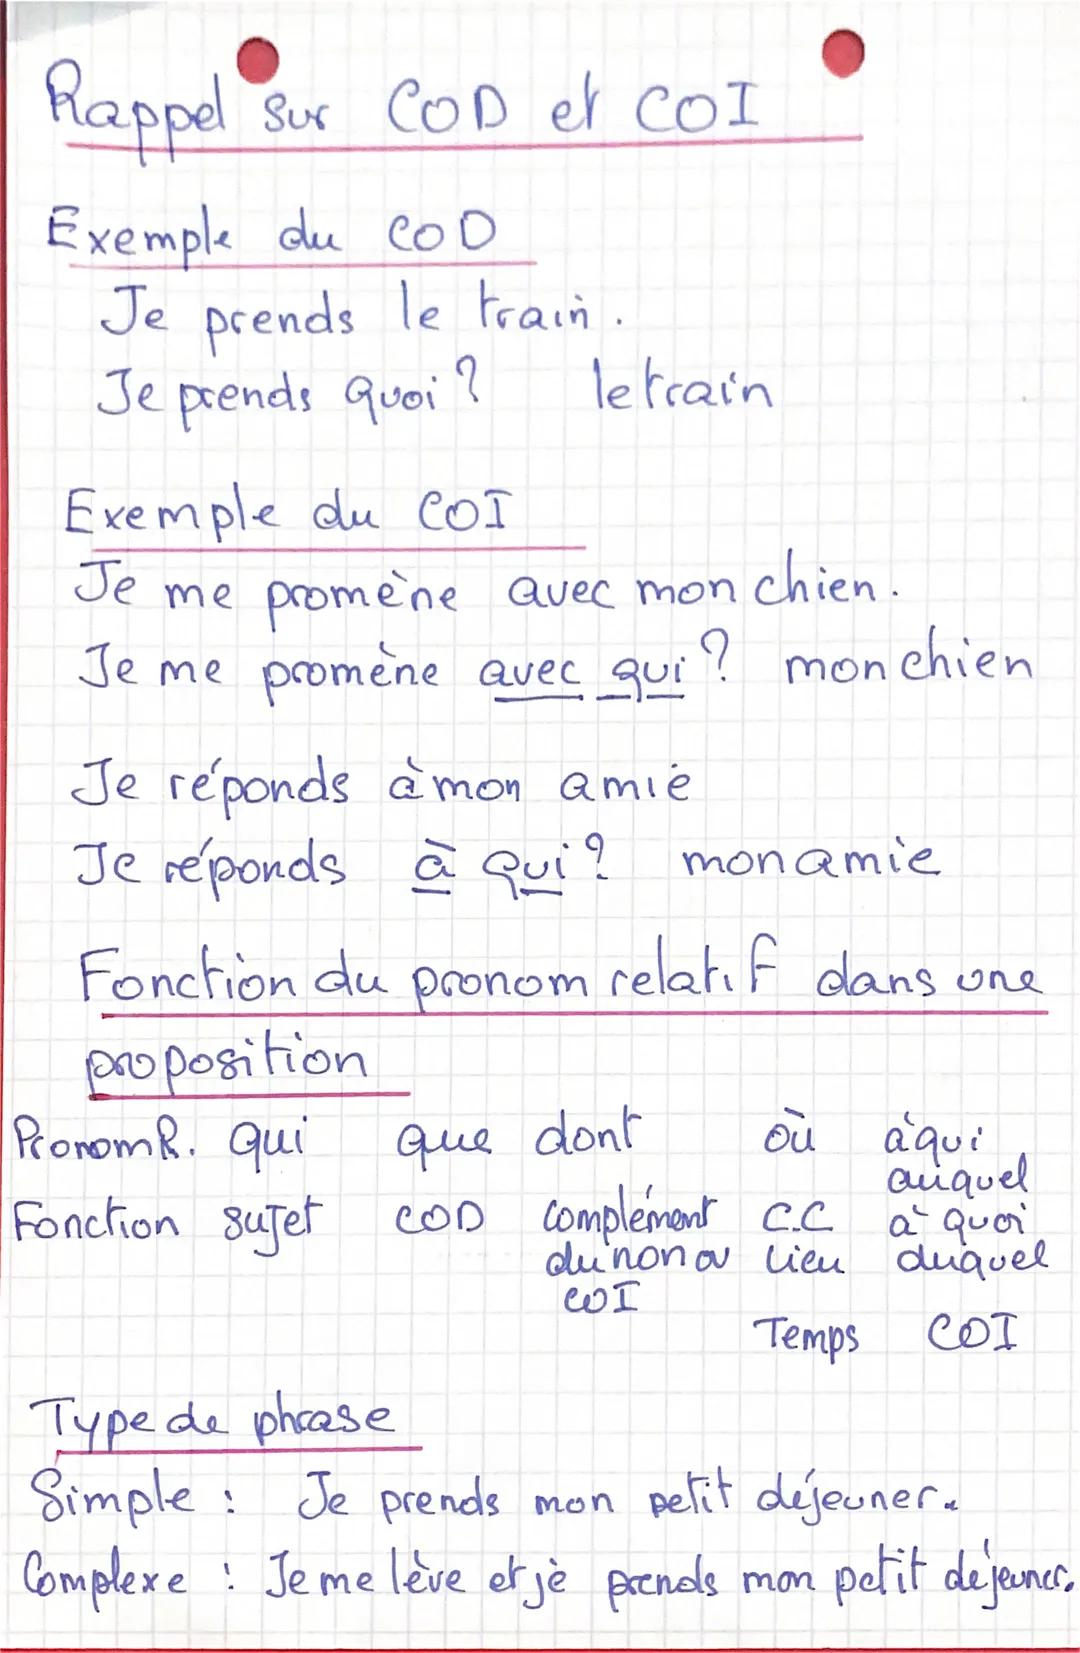 Rappel sur COD et COI
Exemple du COD
Je prends le train.
Je prends quoi ? le train
Exemple du COI
Je me promène avec mon chien.
Je me promène avec qui ? mon chien
Je réponds à mon amie
Je réponds à qui ? mon amie
Fonction du pronom relatif dans une
proposition
Pronom R. qui que dont où à qui
auquel
Fonction sujet COD complément C.C à quoi
du non ou lieu duquel
COI
Temps COI
Type de phrase
Simple : Je prends mon petit déjeuner.
Complexe : Je me lève et je prends mon petit déjeuner.